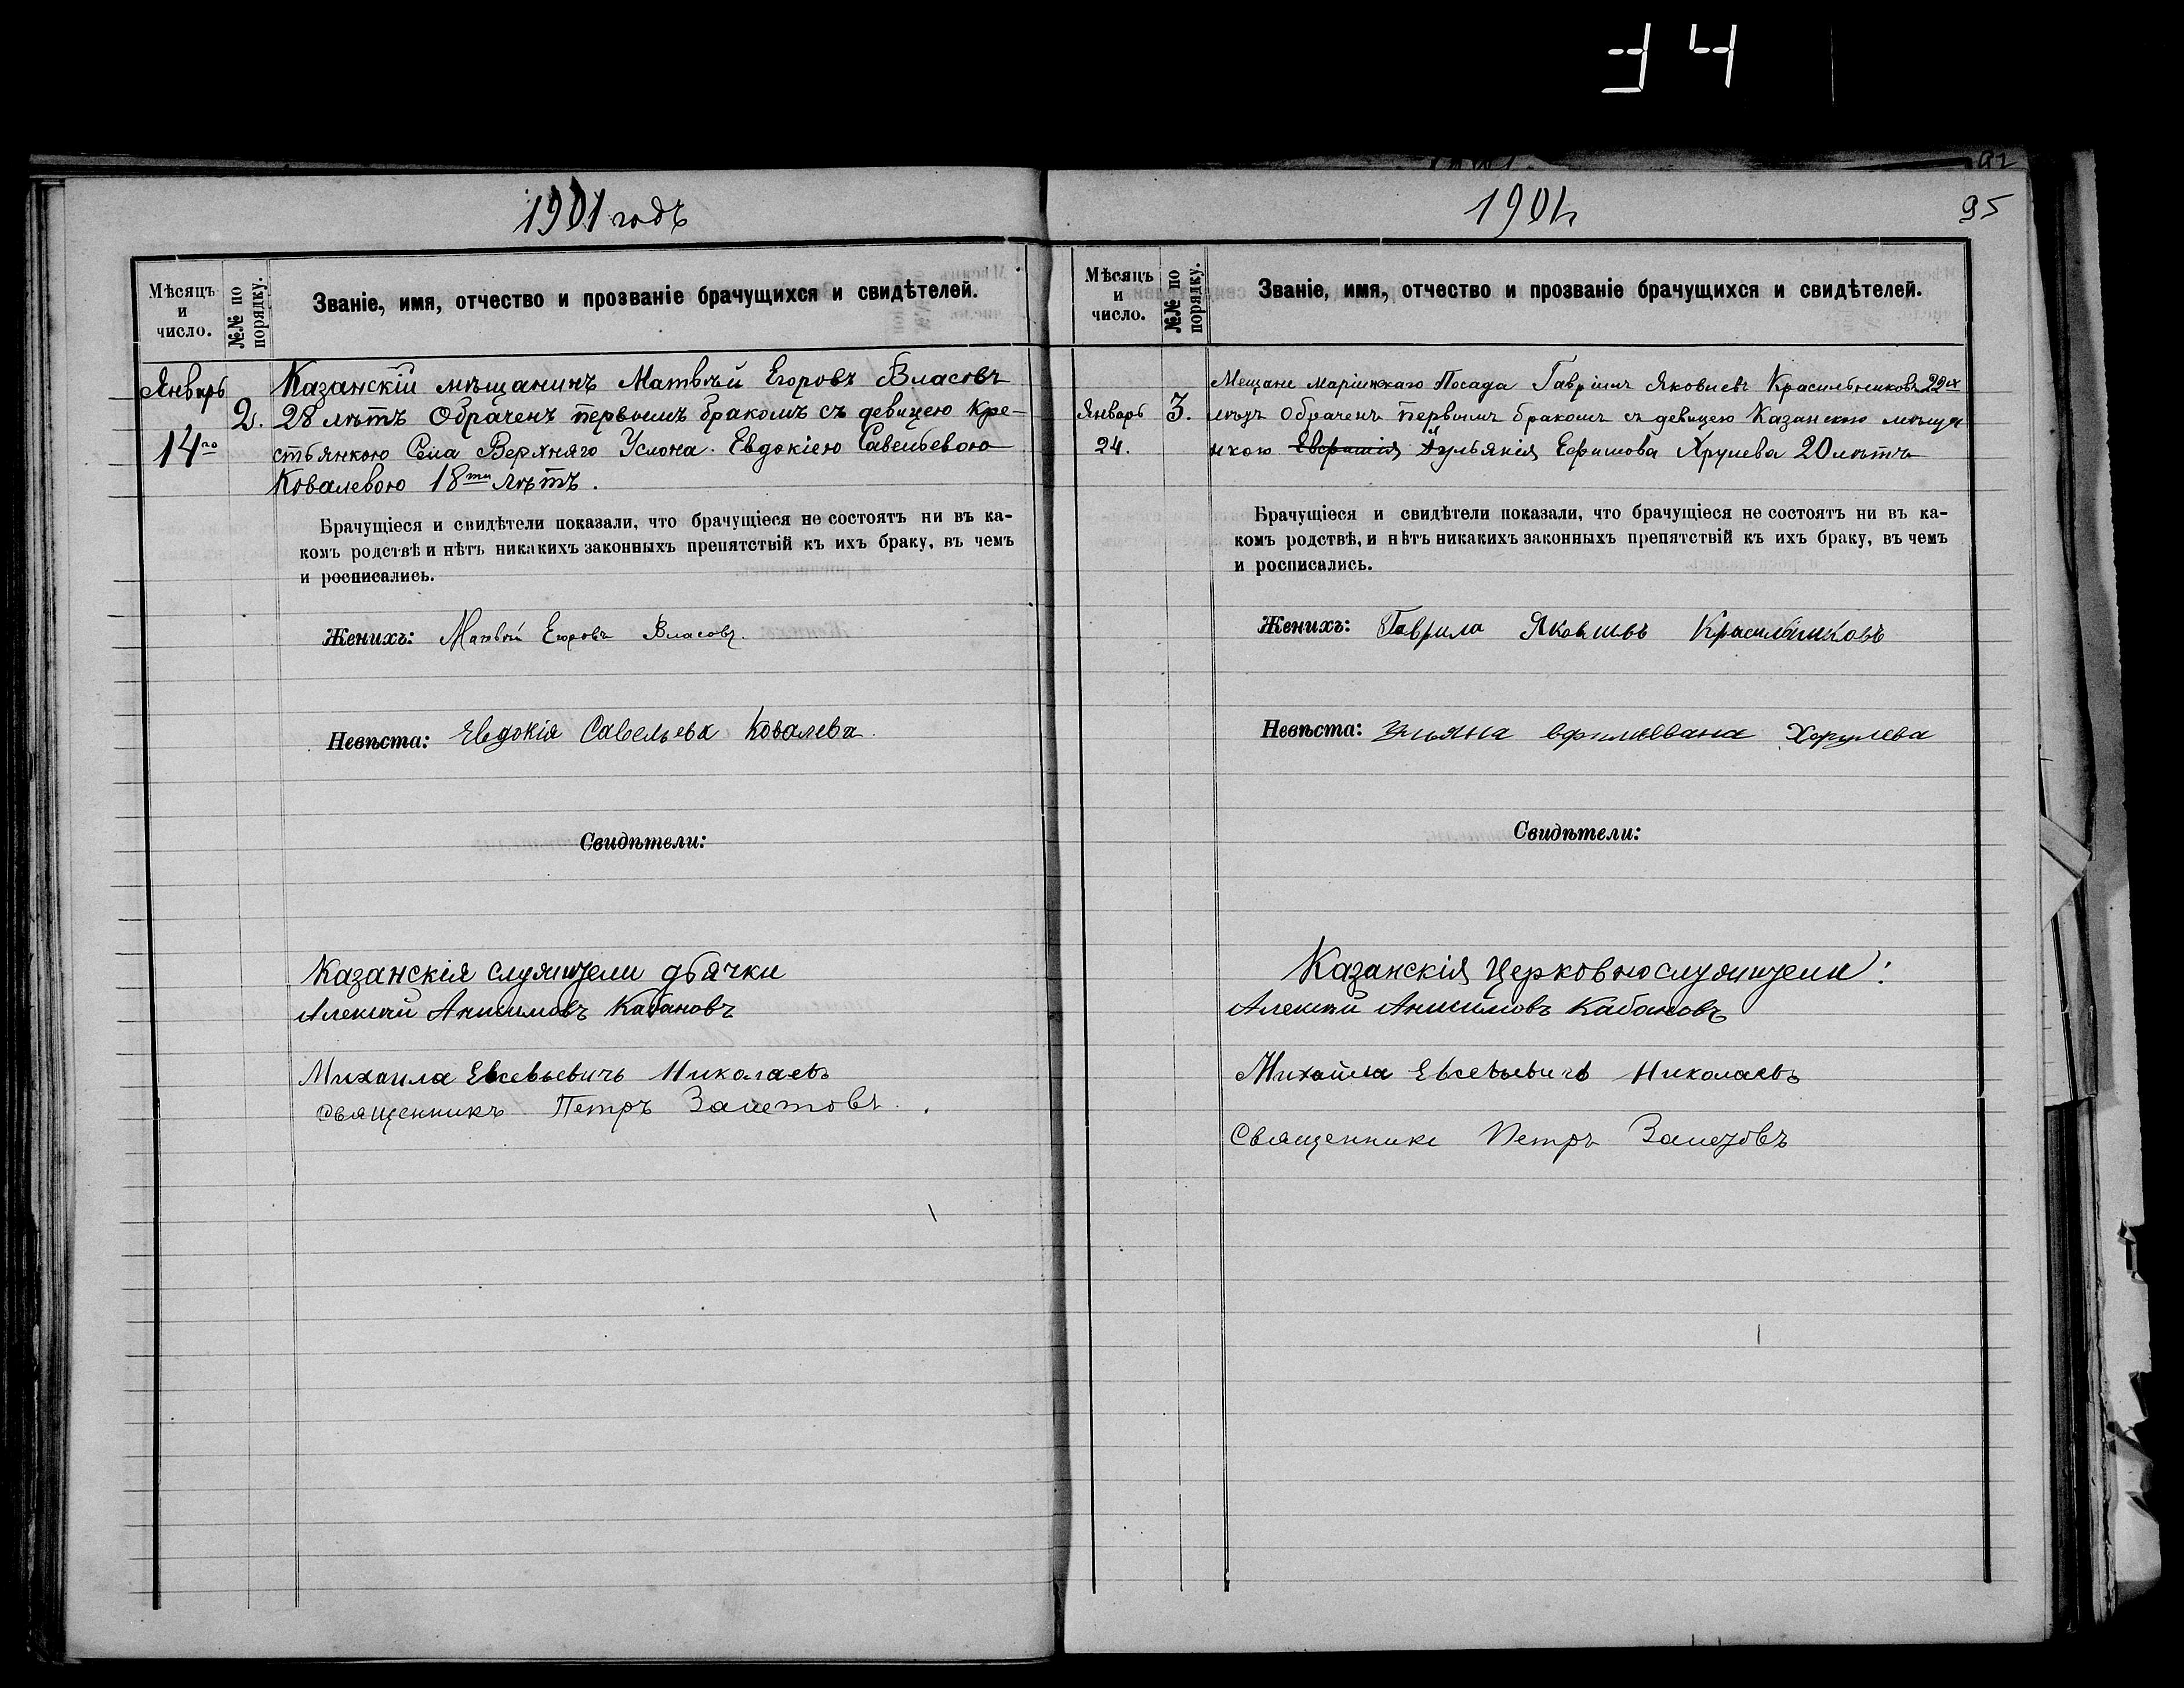 34
92
1901 годъ
Мѣсяцъ и число.
№№ по порядку.
Званіе, имя, отчество и прозваніе брачущихся и свидѣтелей.
Январь
14го
2.
Казанскій мѣщанинъ Матвѣй Егоровъ Власовъ
28 лѣтъ Обраченъ первымъ бракомъ съ девицею Кре-
стьянкою Села Верхняго Услона. Евдокіею Савельевою
Ковалевою 18ти лѣтъ.
Брачущіеся и свидѣтели показали, что брачущіеся не состоятъ ни въ ка-
комъ родствѣ и нѣтъ никакихъ законныхъ препятствій къ ихъ браку, въ чемъ
и росписались.
Женихъ: Матвѣй Егоровъ Власовъ.
Невѣста: Евдокія Савельева Ковалева.
Свидѣтели:
Казанскія служители дьячки
Алексѣй Анисимовъ Кабановъ
Михаила Евсевьевичь Николаевъ
Священникъ Петръ Залетовъ.
1901
95
Мѣсяцъ и число.
№№ по порядку.
Званіе, имя, отчество и прозваніе брачущихся и свидѣтелей.
Январь
24.
3.
Мещане Маріинскаго Посада Гавріилъ Яковлевъ Красильниковъ 22х
лѣтъ Обраченъ первымъ бракомъ съ девицею Казанскою мѣща
нкою Ульянія Ефимова Хрулева 20 лѣтъ
Брачущіеся и свидѣтели показали, что брачущіеся не состоятъ ни въ ка-
комъ родствѣ, и нѣтъ никакихъ законныхъ препятствій къ ихъ браку, въ чемъ
и росписались.
Женихъ: Гаврила Яковливъ Красильниковъ
Невѣста: Хорулева
Свидѣтели:
Казанскія Церковно служители:
Алексѣй Анисимовъ Кабановъ
Михайла Евсевьевичъ Николаевъ
Священникъ Петръ Залетовъ